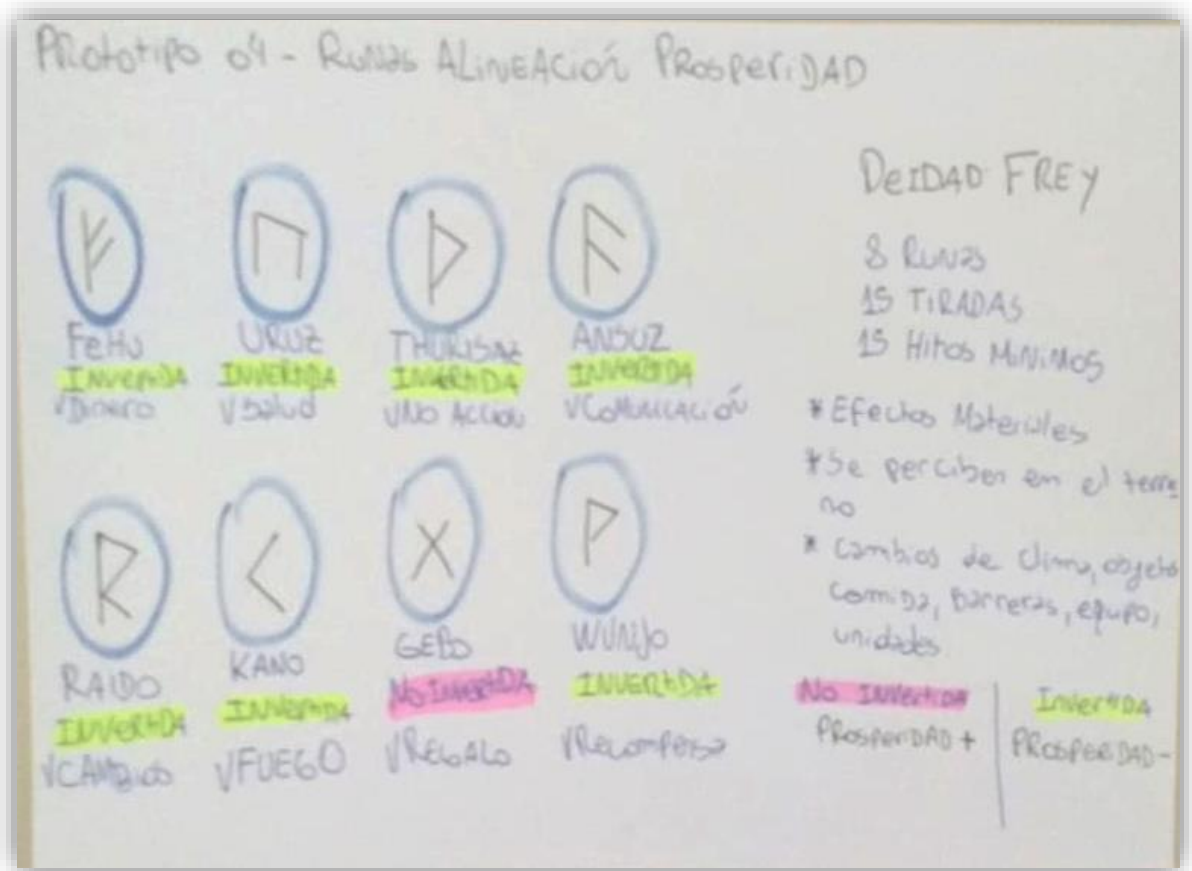 Prototipo 04 - Runas Alineación Prosperidad
Fehu
Invertida
√Dinero
Uruz
Invertida
√Salud
Thurisaz
Invertida
√No Accion
Ansuz
Invertida
√Comunicación
Raido
Invertida
√Cambios
Kano
Invertida
√Fuego
Gebo
No Invertida
√Regalo
Wunjo
Invertida
√Recompensa
Deidad Frey
8 Runas
15 Tiradas
15 Hitos Minimos
* Efectos Materiales
* Se perciben en el terre
no
* Cambios de clima, objeto
comida, barreras, equipo,
unidades.
No Invertida
Prosperidad +
Invertida
Prosperidad -